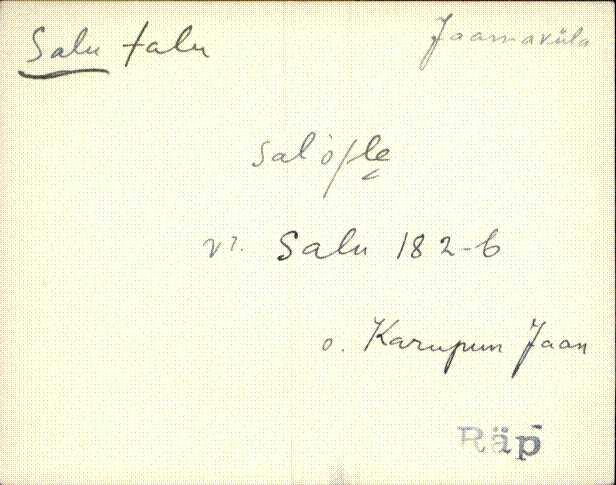 Salu talu Jaamaküla
salò/le
vt. Salu 182-b
o. Karupun Jaan
Räp